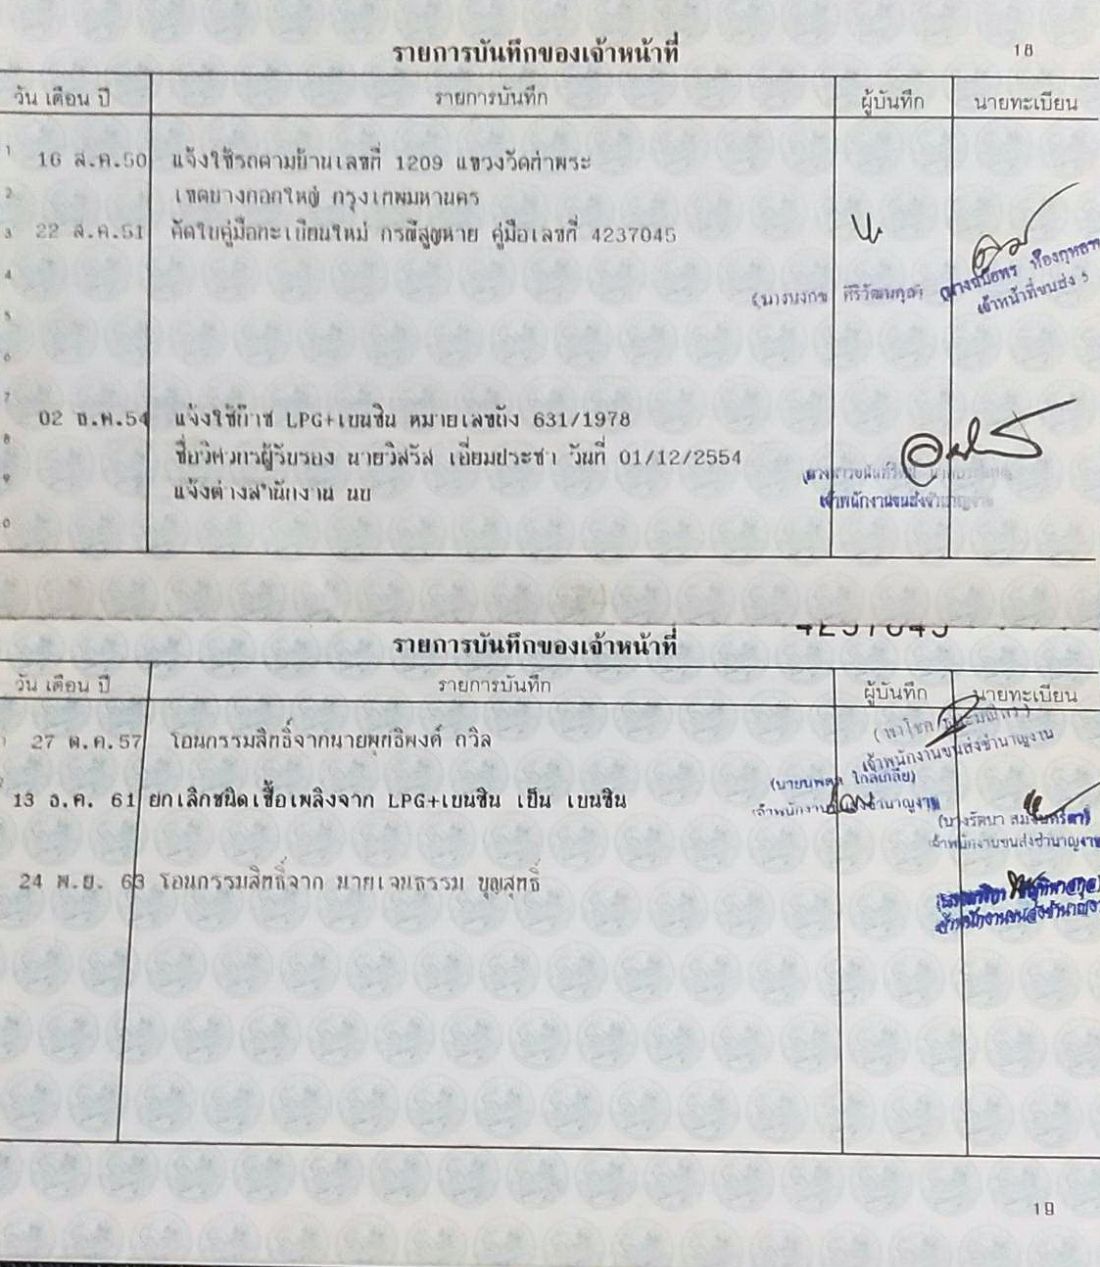 รายการบันทึกของเจ้าหน้าที่
18
วัน เดือน ปี รายการบันทึก ผู้บันทึก นายทะเบียน
1 16 ส.ค.50 แจ้งใช้รถตามบ้านเลขที่ 1209 แขวงวัดท่าพระ
2 เขตบางกอกใหญ่ กรุงเทพมหานคร
3 22 ส.ค.51 คัดใบคู่มือทะเบียนใหม่ กรณีสูญหาย คู่มือเลขที่ 4237045
4
เจ้าหน้าที่ขนส่ง 5
5
6
7
02 ธ.ค.54 แจ้งใช้ก๊าซ LPG+เบนซิน หมายเลขถัง 631/1978
8
ชื่อวิศวกรผู้รับรอง นายวิสรัส เอี่ยมประชา วันที่ 01/12/2554
9
แจ้งต่างสำนักงาน นบ
เจ้าพนักงานขนส่งชำนาญงาน
0
4237045
รายการบันทึกของเจ้าหน้าที่
วัน เดือน ปี รายการบันทึก ผู้บันทึก นายทะเบียน
1 27 ต.ค.57 โอนกรรมสิทธิ์จากนายพุทธิพงค์ ถวิล
เจ้าพนักงานขนส่งชำนาญงาน
2 13 ธ.ค. 61 ยกเลิกชนิดเชื้อเพลิงจาก LPG+เบนซิน เป็น เบนซิน
เจ้าพนักงานขนส่งชำนาญงาน
เจ้าพนักงานขนส่งชำนาญงาน
24 พ.ย. 63 โอนกรรมสิทธิ์จาก นายเจนธรรม บุญสุทธิ์
เจ้าพนักงานขนส่งชำนาญงาน
19